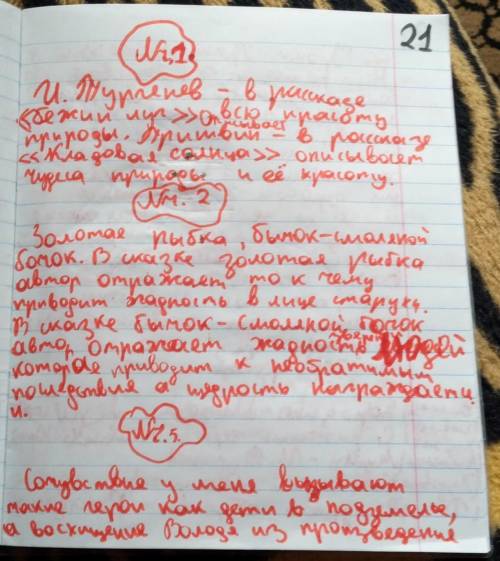 21
№1.
И. Тургенев – в рассказе
"Бежин луг>> описывает всю красоту
природы. Пришвин – в рассказе
<<Кладовая солнца>> описывает
чудеса природы и её красоту.
№ 2
Золотая рыбка, бычок-смоляной
бочок. В сказке золотая рыбка
автор отражает то к чему
приводит жадность в лице старухи.
В сказке бычок-смоляной бочок
автор отражает жадность людей
которое приводит к необратимым
последствия а щедрость награждается
и.
Сочувствие у меня вызывают
такие герои как дети в подземелье,
а восхищение Володя из произведения